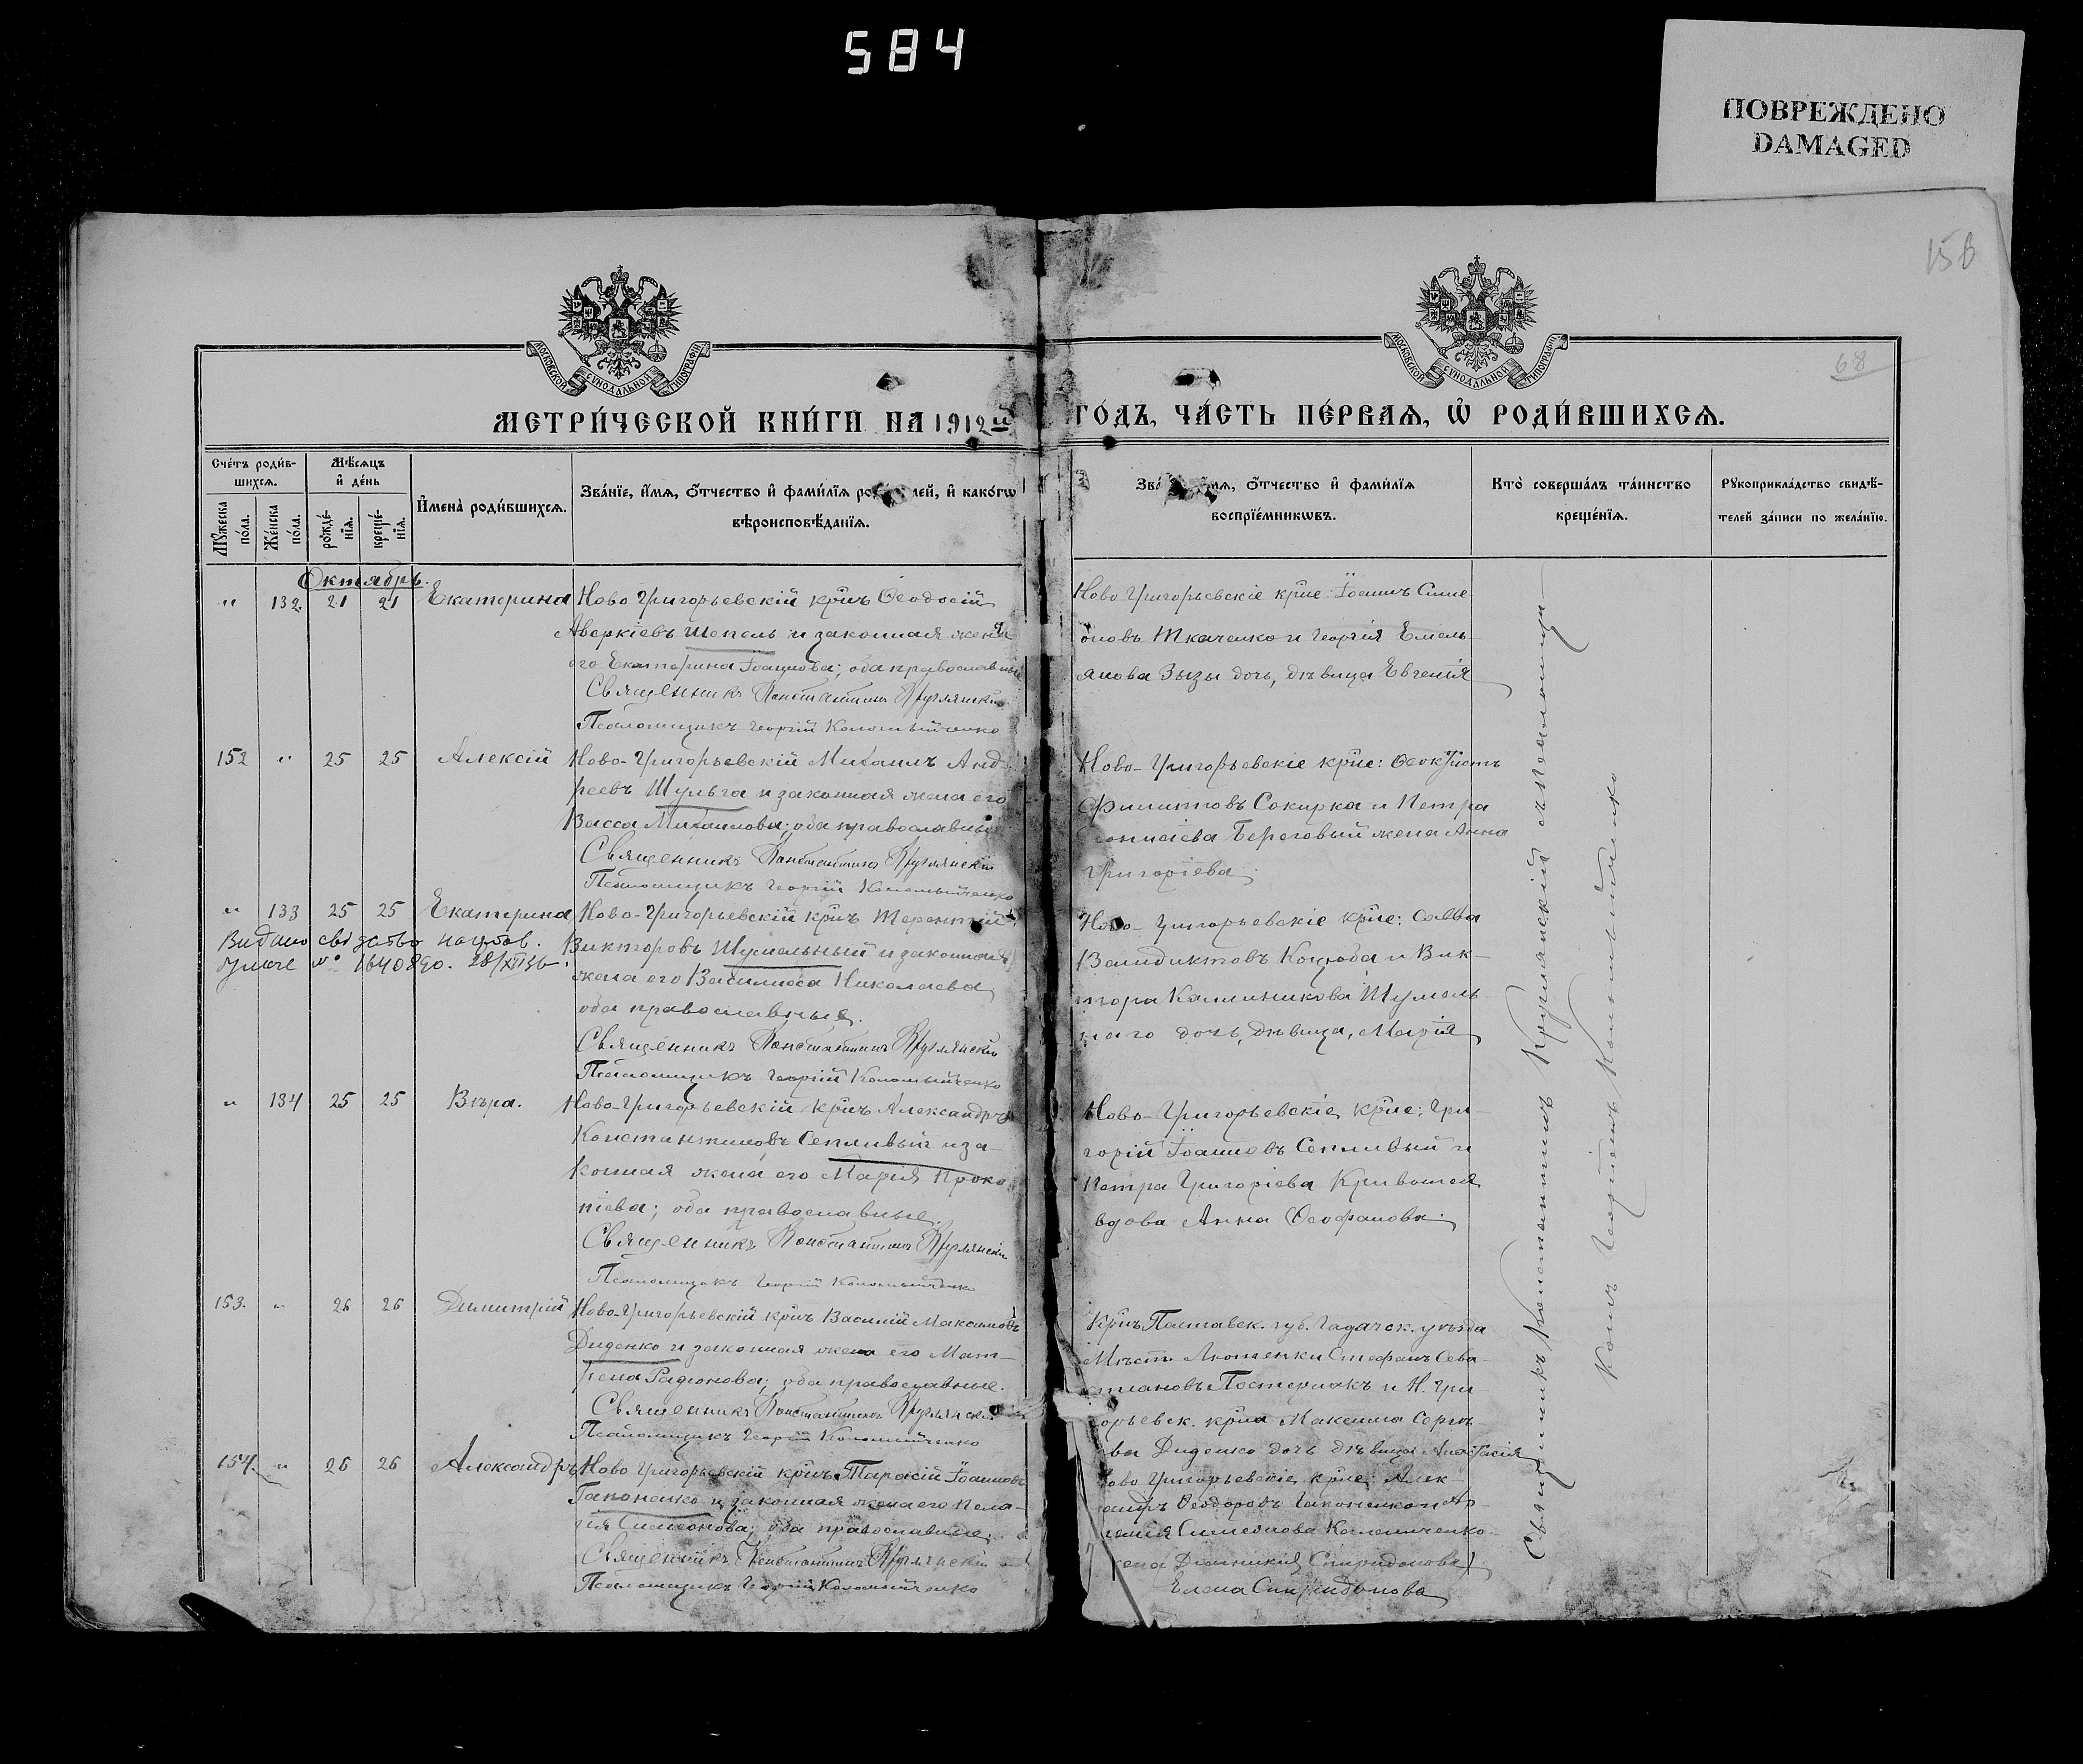 584
ПОВРЕЖДЕНО
DAMAGED
156
68
МОСКОВСКОЙ СУНОДАЛЬНОЙ ТИПОГРАФІИ
МОСКОВСКОЙ СУНОДАЛЬНОЙ ТИПОГРАФІИ
МЕТРИ́ЧЕСКОЙ КНИ́ГИ НА 1912й ГО́ДЪ, ЧА́СТЬ ПЕ́РВАѦ, Ѡ РОДИ́ВШИХСѦ.
Сче́тъ роди́в-
шихсѧ.
Мѣ́сѧцъ
и҆ де́нь
Мꙋ́жеска по́ла.
Же́нска по́ла.
рожде́-
нїѧ.
креще́-
нїѧ.
И҆мена̀ роди́вшихсѧ.
Зва́нїе, и҆́мѧ, ѻ҆́тчество и҆ фами́лїѧ роди́телей, и҆ како́гѡ
вѣроисповѣ́данїѧ.
Зва́нїе, и҆́мѧ, ѻ҆́тчество и҆ фами́лїѧ
воспрїе́мникѡвъ.
Кто̀ соверша́лъ та́инство
креще́нїѧ.
Рꙋкоприкла́дство свидѣ́-
телей за́писи по жела́нїю.
Октябрь.
" 132. 21 21 Екатерина
Ново Григорьевскій кр̃нъ Ѳеодосій
Аверкіевъ Шепель и законная жена
его Екатерина Іоаннова; оба православные
Священникъ Константинъ Крумлянскій
Псаломщикъ Георгій Коломыйченко
Ново Григорьевскіе кр̃не: Іоаннъ Симе
оновъ Ткаченко и Георгія Емель
янова Зызы дочь, дѣвица Евгенія
152 " 25 25 Алексій
Ново-Григорьевскій Михаилъ Анд
реевъ Шульга и законная жена его
Васса Михаилова; оба православные
Священникъ Константинъ Крумлянскій
Псаломщикъ Георгій Коломыйченко
Ново-Григорьевскіе кр̃не: Ѳеоктистъ
Филипповъ Сокирка и Петра
Береговый жена Анна
Григоріева.
" 133 25 25 Екатерина
Видано свідоцтво
№ 1640890. 28/XII 36.
Ново-Григорьевскій кр̃нъ Терентій
Викторовъ Шумельный и законная
жена его Василисса Николаева
оба православные.
Священникъ Константинъ Крумлянскій
Псаломщикъ Георгій Коломыйченко
Ново-Григорьевскіе кр̃не: Савва
Венидиктовъ Коцюба и Вик-
тора Калиникова Шумель
наго дочь, дѣвица, Марія
" 134 25 25 Вѣра.
Ново-Григорьевскій кр̃нъ Александръ
Константиновъ Сепливый и за-
конная жена его Марія Проко
піева; оба православные.
Священникъ Константинъ Крумлянскій
Псаломщикъ Георгій Коломыйченко
Ново-Григорьевскіе кр̃не: Гри-
горій Іоанновъ Сепливый и
Петра Григоріева Кривошея
вдова Анна Ѳеофанова.
153. " 26 26 Димитрій
Ново-Григорьевскій кр̃нъ Василій Максимовъ
Диденко и законная жена его Мат-
рена Родіонова; оба православные.
Священникъ Константинъ Крумлянскій
Псаломщикъ Георгій Коломыйченко
Кр̃нъ Полтавск. губ. Гадячск. уѣзда
Мѣст. Лютенки Стефанъ Сева-
стіановъ Постернакъ и Н. Гри-
горьевск. кр̃на Максима Сергѣ-
ева Диденко дочь дѣвица Анастасія
154. " 26 26 Александръ
Ново Григорьевскій кр̃нъ Тарасій Іоанновъ
Гапоненко и законная жена его Пела-
гія Симеонова; оба православные.
Священникъ Константинъ Крумлянскій
Псаломщикъ Георгій Коломыйченко
Ново Григорьевскіе кр̃не: Алек
сандръ Ѳеодоровъ Гапоненко и
Симеонова
жена Спиридонова
Елена Спиридонова
Священникъ Константинъ Крумлянскій съ псаломщи-
комъ Георгіемъ Коломыйченко